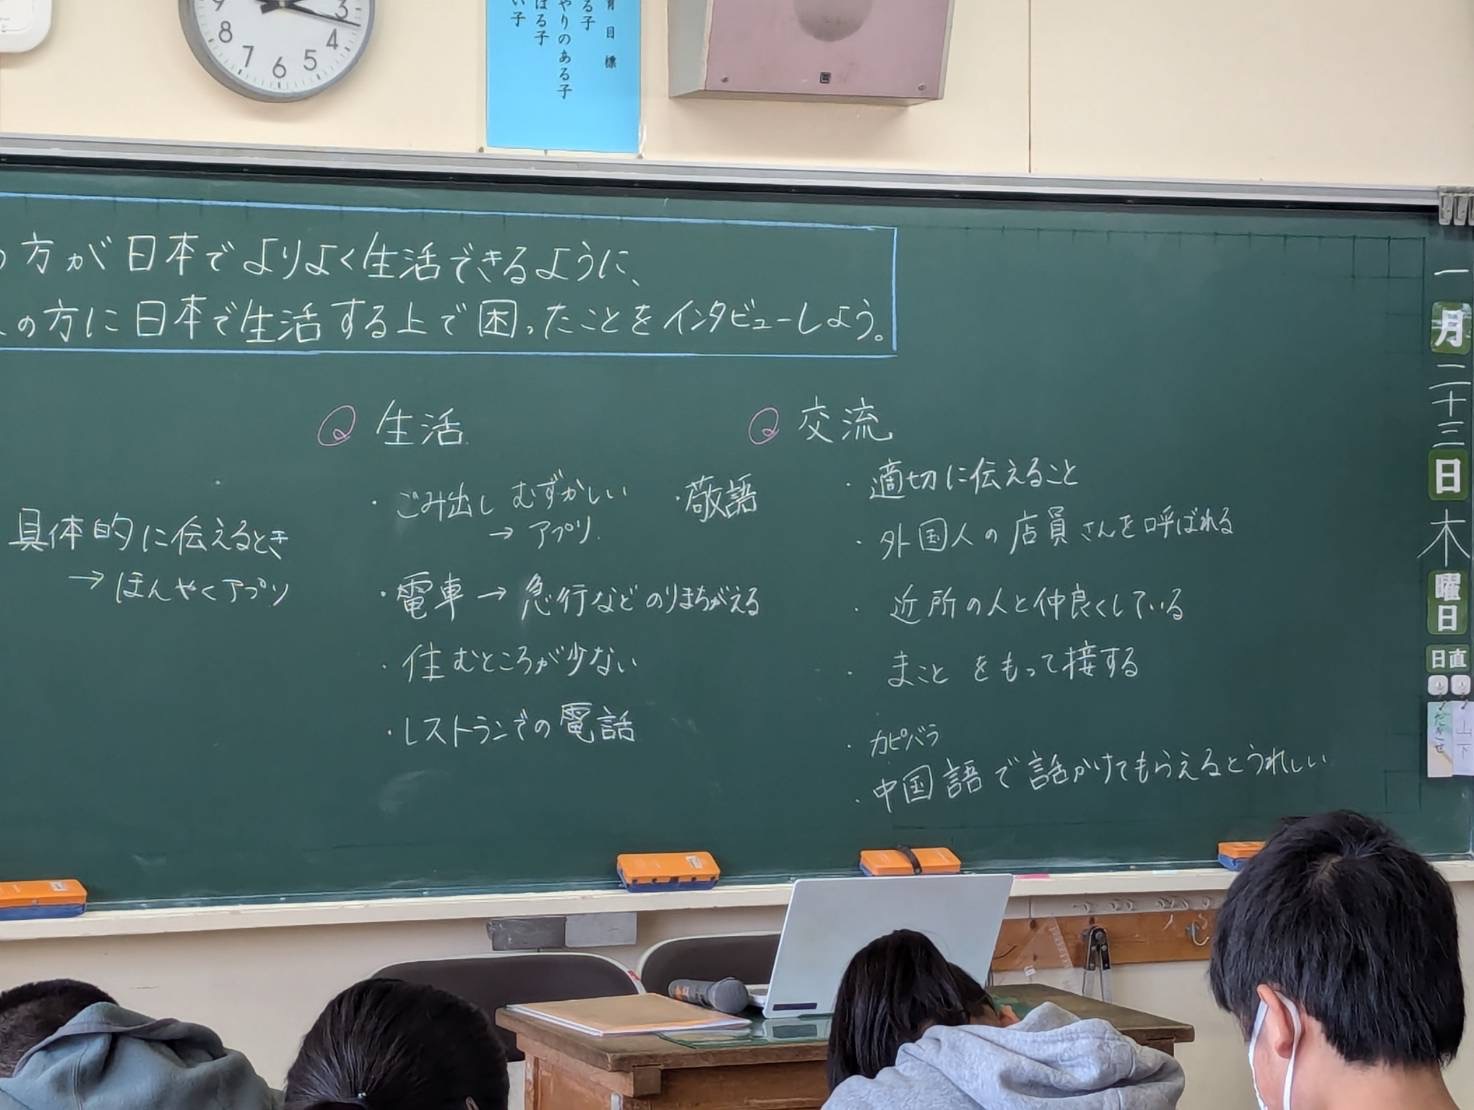 9
3
8
4
7
6
5
育目標
る子
やりのある子
ばる子
い子
方が日本でよりよく生活できるように、
の方に日本で生活する上で困ったことをインタビューしよう。
具体的に伝えるとき
→ほんやくアプリ
Q 生活
・ごみ出し むずかしい
→アプリ
・電車→急行などのりまちがえる
・住むところが少ない
・レストランでの電話
・敬語
Q 交流
・適切に伝えること
・外国人の店員さんを呼ばれる
・近所の人と仲良くしている
・まことをもって接する
・カピバラ
・中国語で話かけてもらえるとうれしい
一月二十三日木曜日
日直
山下